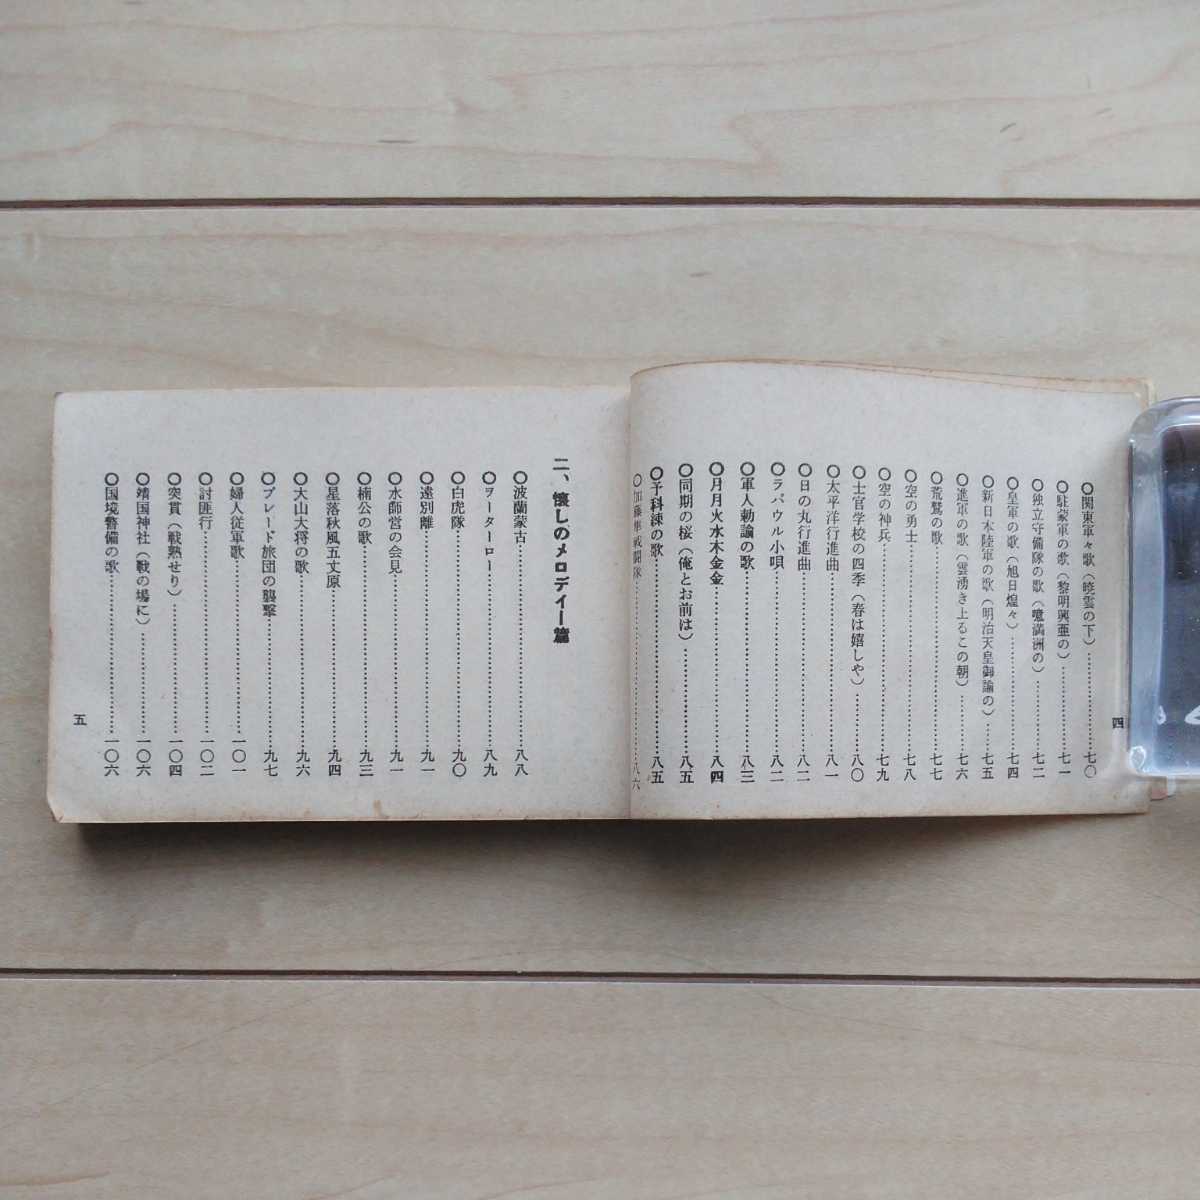 〇関東軍々歌（暁雲の下）……七〇
〇駐蒙軍の歌（黎明興亜の）……七一
〇独立守備隊の歌（噫満洲の）……七二
〇皇軍の歌（旭日煌々）……七四
〇新日本陸軍の歌（明治天皇御諭の）……七五
〇進軍の歌（雲湧き上るこの朝）……七六
〇荒鷲の歌……七七
〇空の勇士……七八
〇空の神兵……七九
〇士官学校の四季（春は嬉しや）……八〇
〇太平洋行進曲……八一
〇日の丸行進曲……八二
〇ラバウル小唄……八二
〇軍人勅諭の歌……八三
〇月月火水木金金……八四
〇同期の桜（俺とお前は）……八五
〇予科練の歌……八五
〇加藤隼戦闘隊……八六
四
二、懐しのメロデイー篇
〇波蘭蒙古……八八
〇ヲーターロー……八九
〇白虎隊……九〇
〇遠別離……九一
〇水師営の会見……九一
〇楠公の歌……九三
〇星落秋風五丈原……九四
〇大山大将の歌……九六
〇ブレード旅団の襲撃……九七
〇婦人従軍歌……一〇一
〇討匪行……一〇二
〇突貫（戦熟せり）……一〇四
〇靖国神社（戦の場に）……一〇六
〇国境警備の歌……一〇六
五